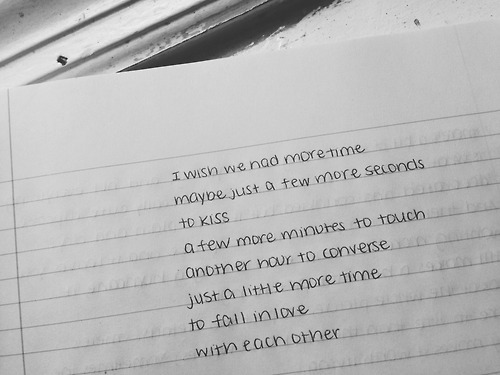 I wish we had more time
maybe just a few more seconds
to kiss
a few more minutes to touch
another hour to converse
just a little more time
to fall in love
with each other